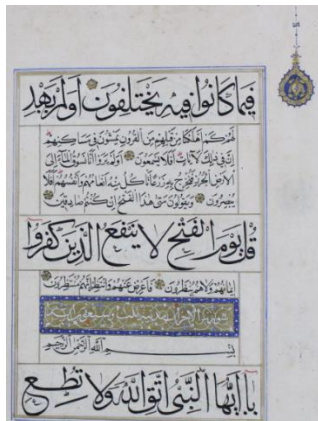 فيما كانوا فيه يختلفون اولم يهد
لهم كم اهلكنا من قبلهم من القرون يمشون في مساكنهم
ان في ذلك لآيات افلا يسمعون اولم يروا انا نسوق الماء الى
الارض الجرز فنخرج به زرعا تأكل منه انعامهم وانفسهم افلا
يبصرون ويقولون متى هذا الفتح ان كنتم صادقين
قل يوم الفتح لا ينفع الذين كفروا
ايمانهم ولا هم ينظرون فاعرض عنهم وانتظر انهم منتظرون
سورة الاحزاب
بسم الله الرحمن الرحيم
يا ايها النبي اتق الله ولا تطع